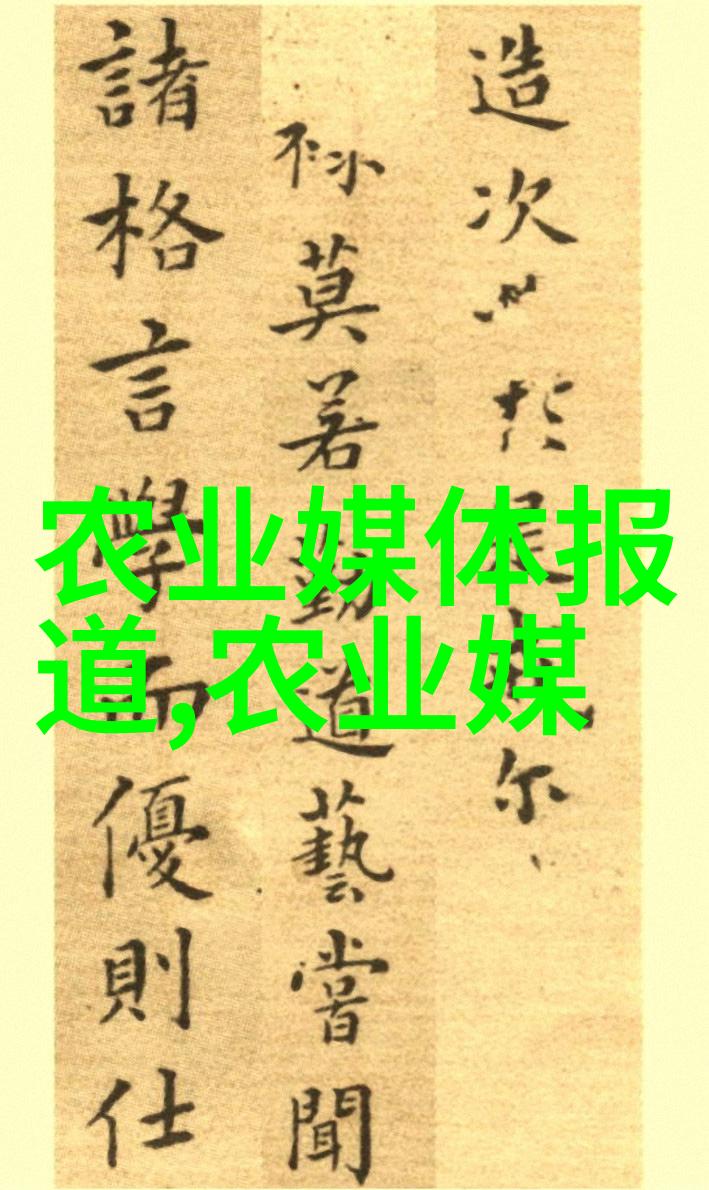 造次
於是
尔
莫若勤道藝嘗聞
諸格言學而優則仕
农业媒体报
道,农业媒